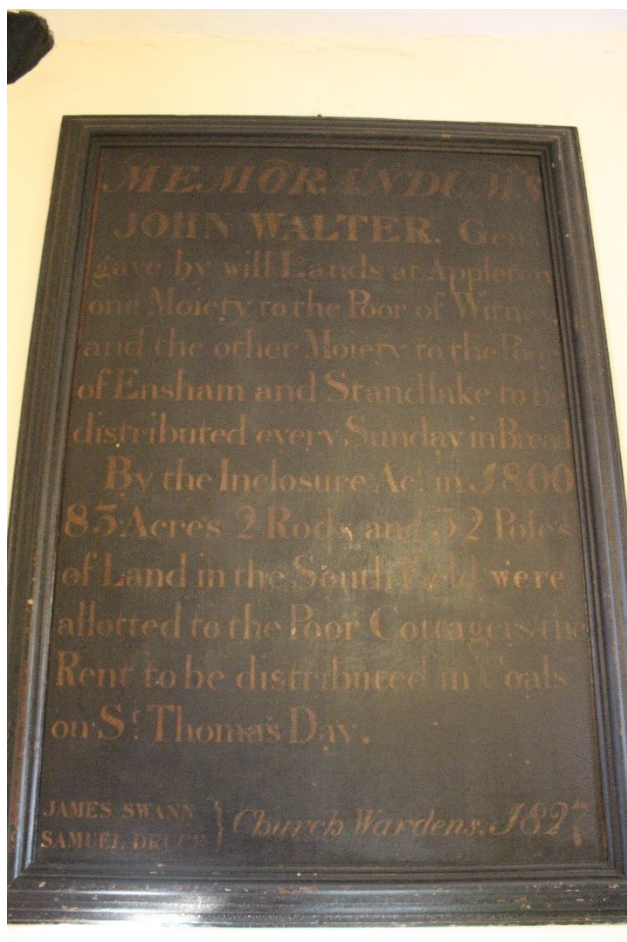 MEMORANDUMS
JOHN WALTER. Gent
gave by will Lands at Appleton
one Moiety to the Poor of Witney
and the other Moiety to the Poor
of Ensham and Standlake to be
distributed every Sunday in Bread
By the Inclosure Act in 1800
83 Acres 2 Rods and 32 Poles
of Land in the South Field were
allotted to the Poor Cottagers the
Rent to be distributed in Coals
on St Thomas Day.
JAMES SWANN
SAMUEL DRUCE } Church Wardens. 1827